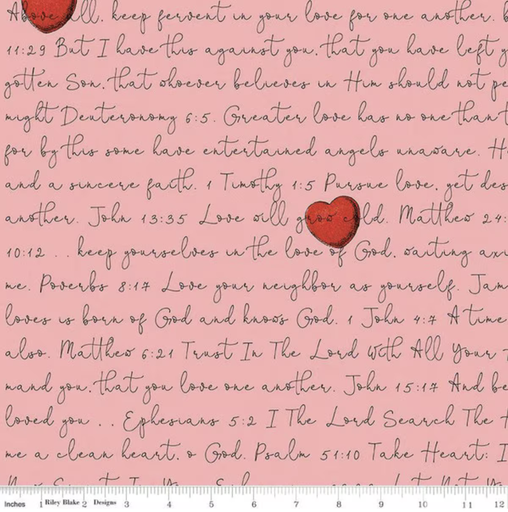 Above all, keep fervent in your love for one another.
11:29 But I have this against you, that you have left
gotten Son, that whoever believes in Him should not pe
might Deuteronomy 6:5. Greater love has no one than
for by this some have entertained angels unaware. H
and a sincere faith. 1 Timothy 1:5 Pursue love, yet des
another. John 13:35 Love will grow cold. Matthew 24:
10:12 .. keep yourselves in the love of God, waiting anxi
me. Poverbs 8:17 Love your neighbor as yourself. Jam
loves is born of God and knows God. 1 John 4:7 A time
also. Matthew 6:21 Trust In The Lord With All Your
mand you, that you love one another. John 15:17 And be
loved you .. Ephesians 5:2 I The Lord Search The
me a clean heart, o God. Psalm 51:10 Take Heart; I
Inches 1 Riley Blake 2 Designs 3 4 5 6 7 8 9 10 11 12